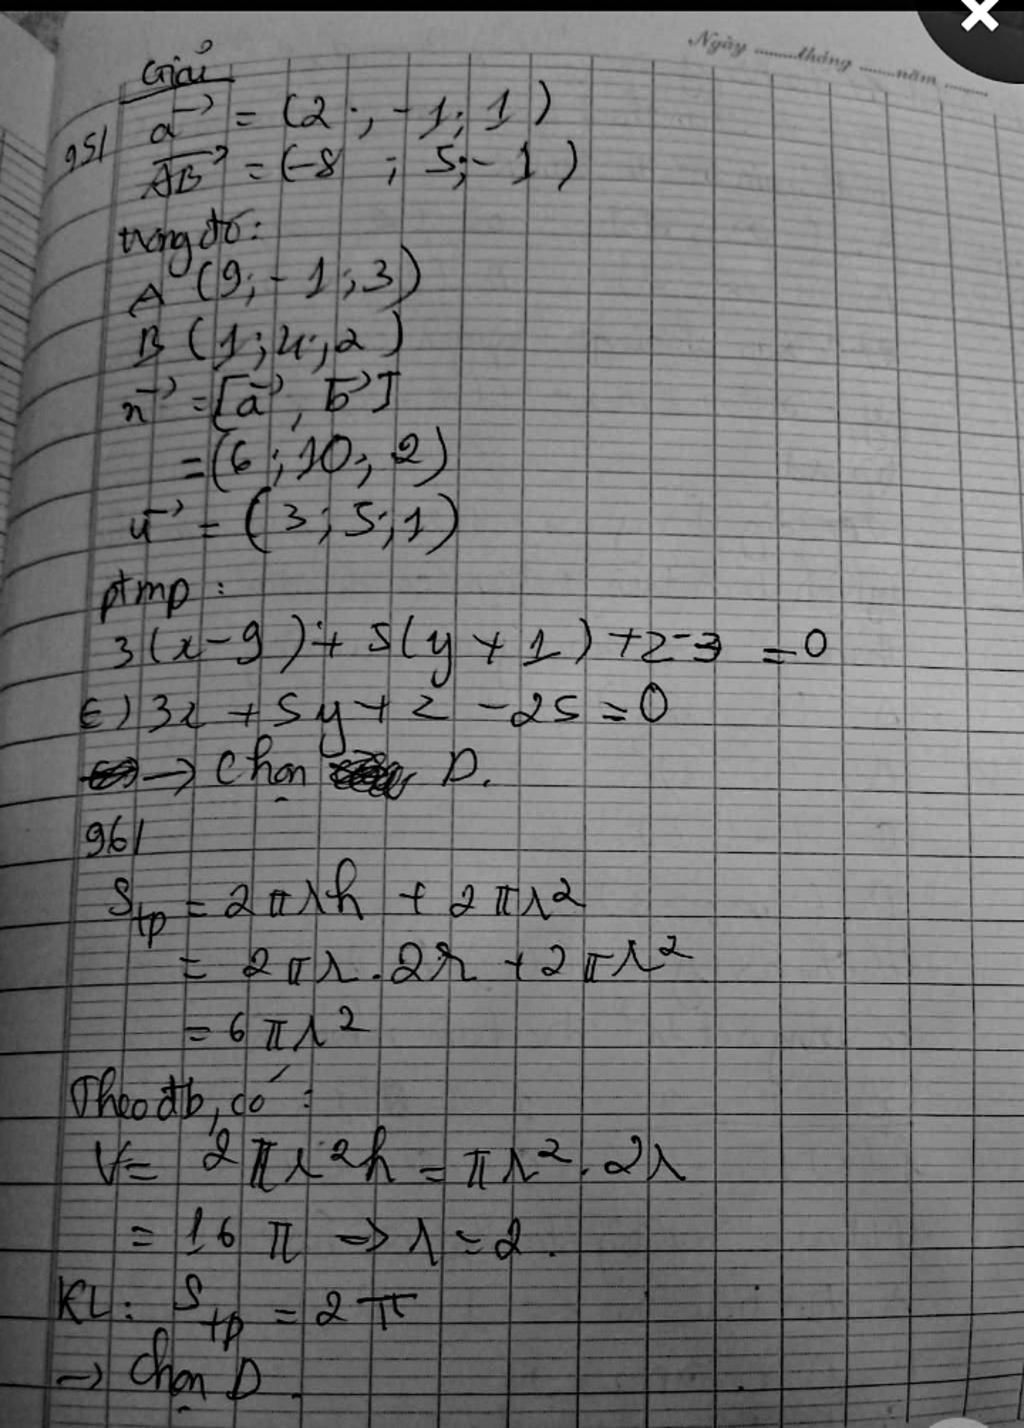 Ngày ........tháng .......năm .......
Giải
95/ a→ = (2 ; -1; 1)
AB→ = (-8 ; 5; -1)
trong đó:
A (9; -1; 3)
B (1; 4; 2)
n→ = [a→, b→]
= (6; 10; 2)
u→ = (3; 5; 1)
ptmp :
3(x-9) + 5(y+1) + z-3 = 0
(=) 3x + 5y + z - 25 = 0
→ Chọn D.
96/
Stp = 2πrh + 2πr²
= 2πr.2r + 2πr²
= 6πr²
Theo đb, có :
V = 2πr²h = πr².2r
= 16π => r = 2.
KL: Stp = 2π
→ Chọn D.